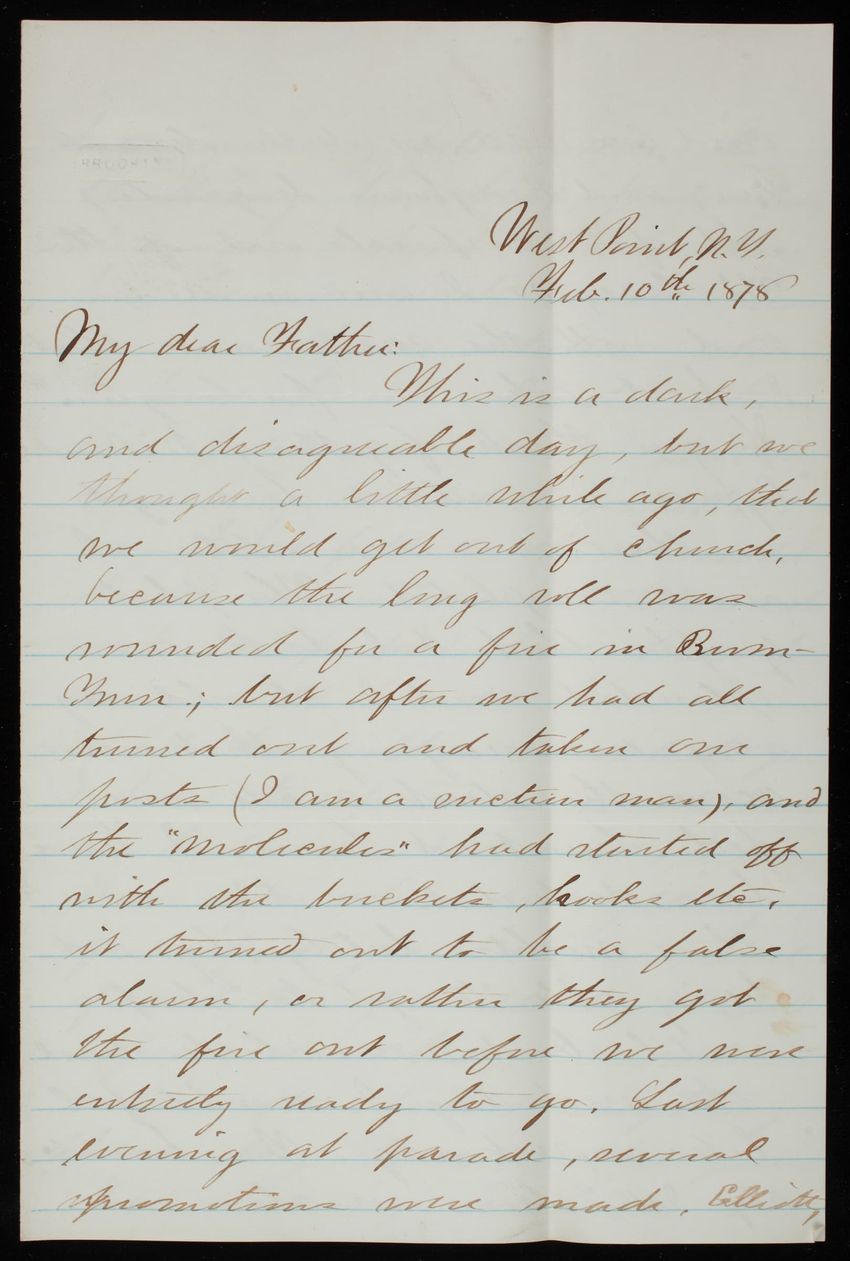 West Point, N.Y.
Feb. 10th 1878
My dear Father:
This is a dark,
and disagreeable day, but we
thought a little while ago, that
we would get out of church,
because the long roll was
sounded for a fire in Rum-
; but after we had all
turned out and taken our
posts (I am a suction man), and
the "molecules" had started off
with the buckets, hooks etc.
it turned out to be a false
alarm, or rather they got
the fire out before we were
entirely ready to go. Last
evening at parade, several
promotions were made. Elliott,